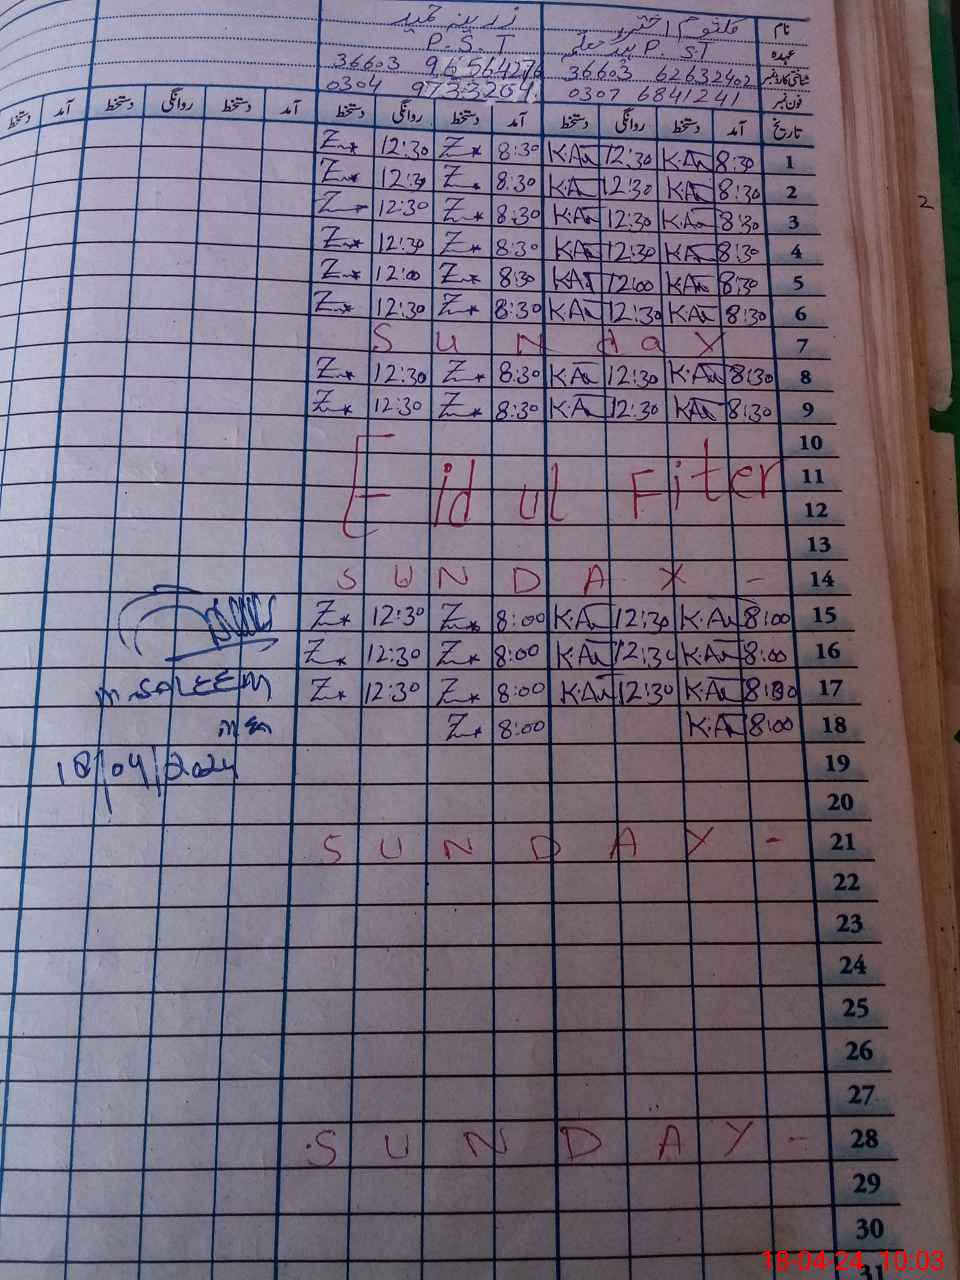 نام کلثوم اختر زرینہ حمید
عہدہ P.S.T P.S.T
شناختی کارڈ نمبر 36603 62632402 36603
فون نمبر 0307 6841241 0304
تاریخ آمد دستخط روانگی دستخط آمد دستخط روانگی دستخط آمد دستخط روانگی دستخط آمد دستخط
1 8:30 K.A 12:30 K.A 8:30 Z 12:30 Z
2 8:30 K.A 12:30 K.A 8:30 Z 12:30 Z
3 8:30 K.A 12:30 K.A 8:30 Z 12:30 Z
4 8:30 K.A 12:30 K.A 8:30 Z 12:30 Z
5 8:30 K.A 12:00 K.A 8:30 Z 12:00 Z
6 8:30 K.A 12:30 K.A 8:30 Z 12:30 Z
7 SUNday
8 8:30 K.A 12:30 K.A 8:30 Z 12:30 Z
9 8:30 K.A 12:30 K.A 8:30 Z 12:30 Z
10
11 Eid ul Fiter
12
13
14 SUNDAY -
15 8:00 K.A 12:30 K.A 8:00 Z 12:30 Z
16 8:00 K.A 12:30 K.A 8:00 Z 12:30 Z
17 8:00 K.A 12:30 K.A 8:00 Z 12:30 Z m.SALEEM
18 8:00 K.A 8:00 Z
19 18/04/2024
20
21 SUNDAY -
22
23
24
25
26
27
28 SUNDAY -
29
30
31
2
18-04-24 10:03